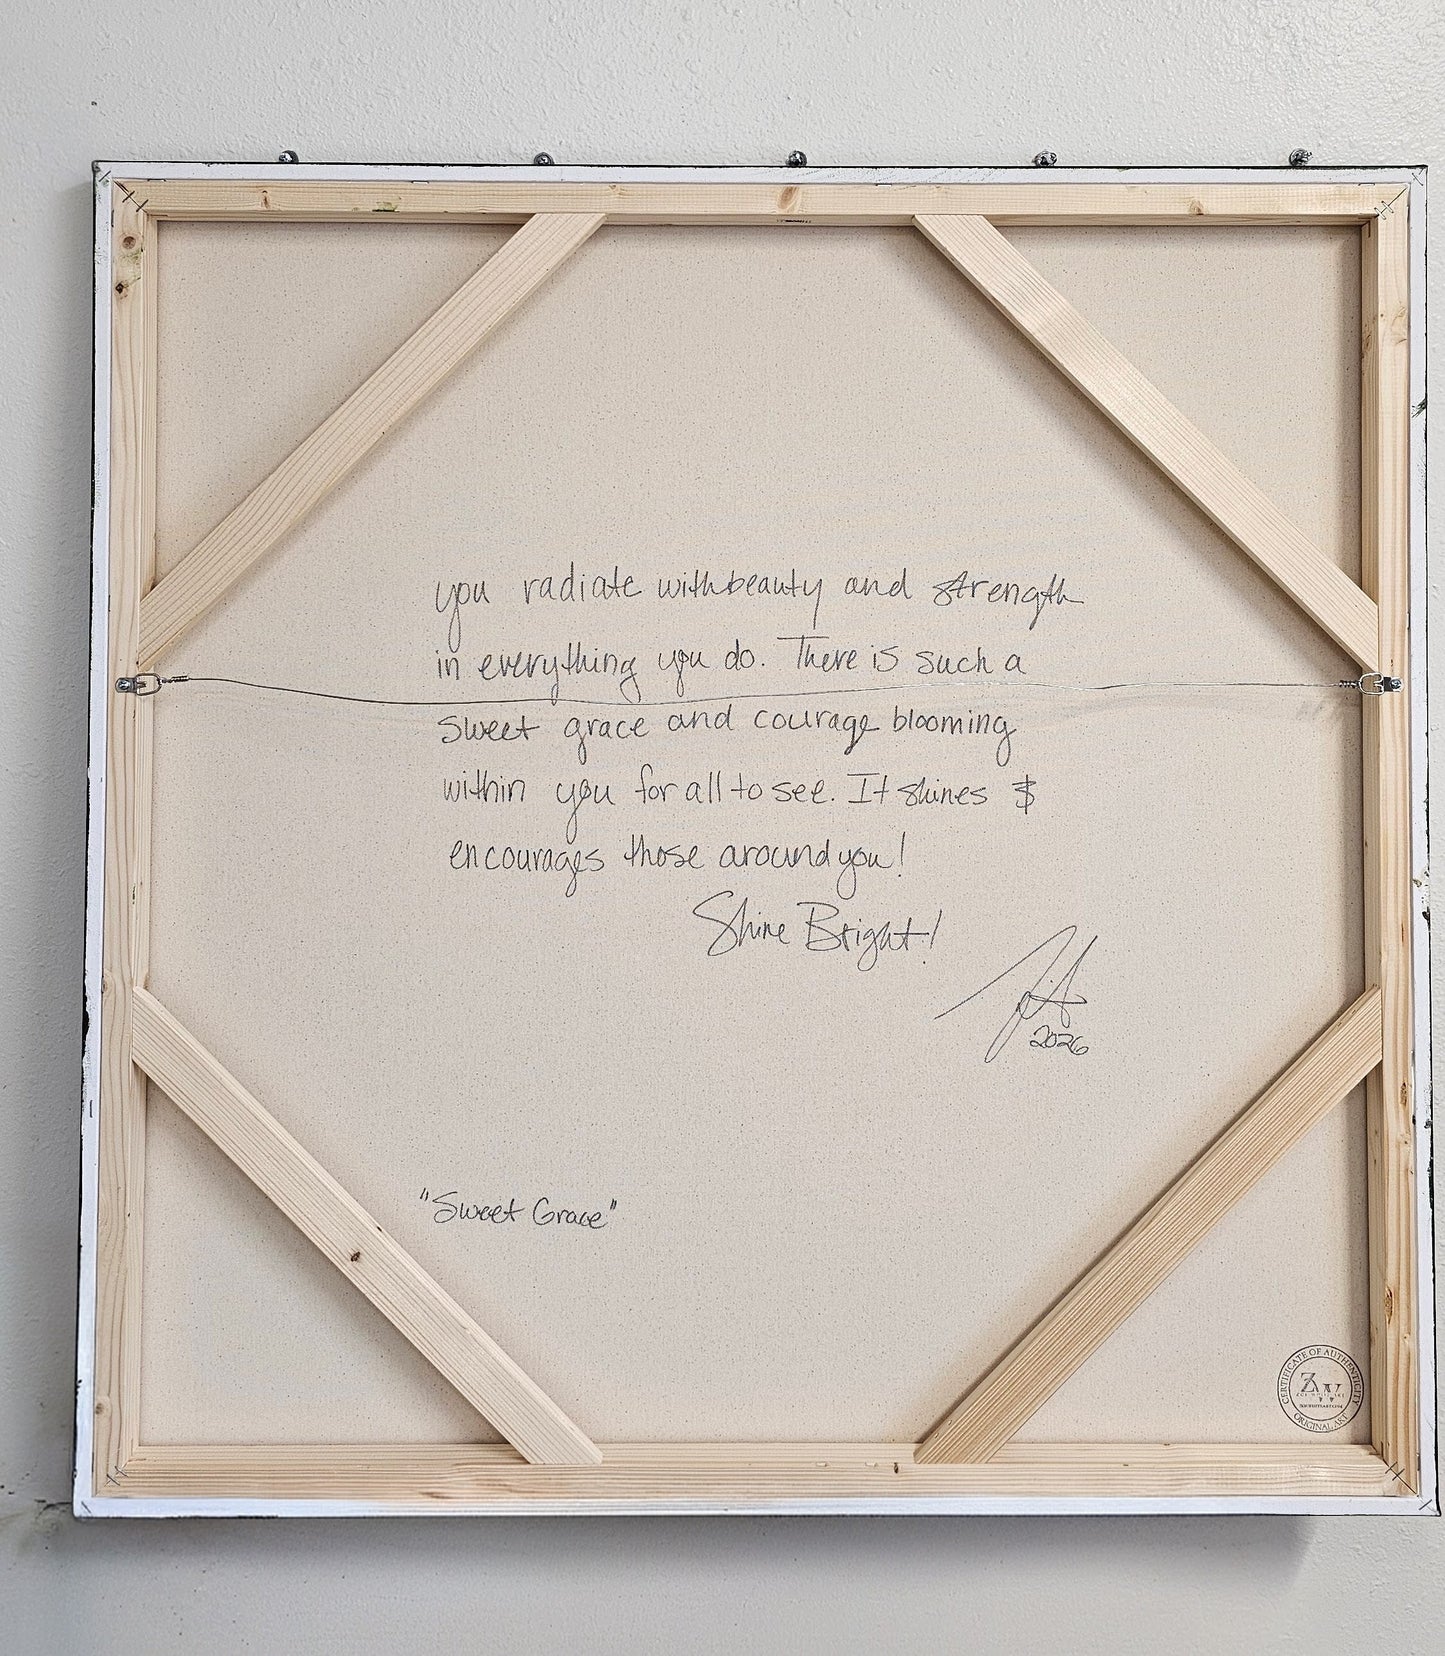 you radiate with beauty and strength
in everything you do. There is such a
sweet grace and courage blooming
within you for all to see. It shines &
encourages those around you!
Shine Bright!
2026
"Sweet Grace"
CERTIFICATE OF AUTHENTICITY
ZW
ORIGINAL ART